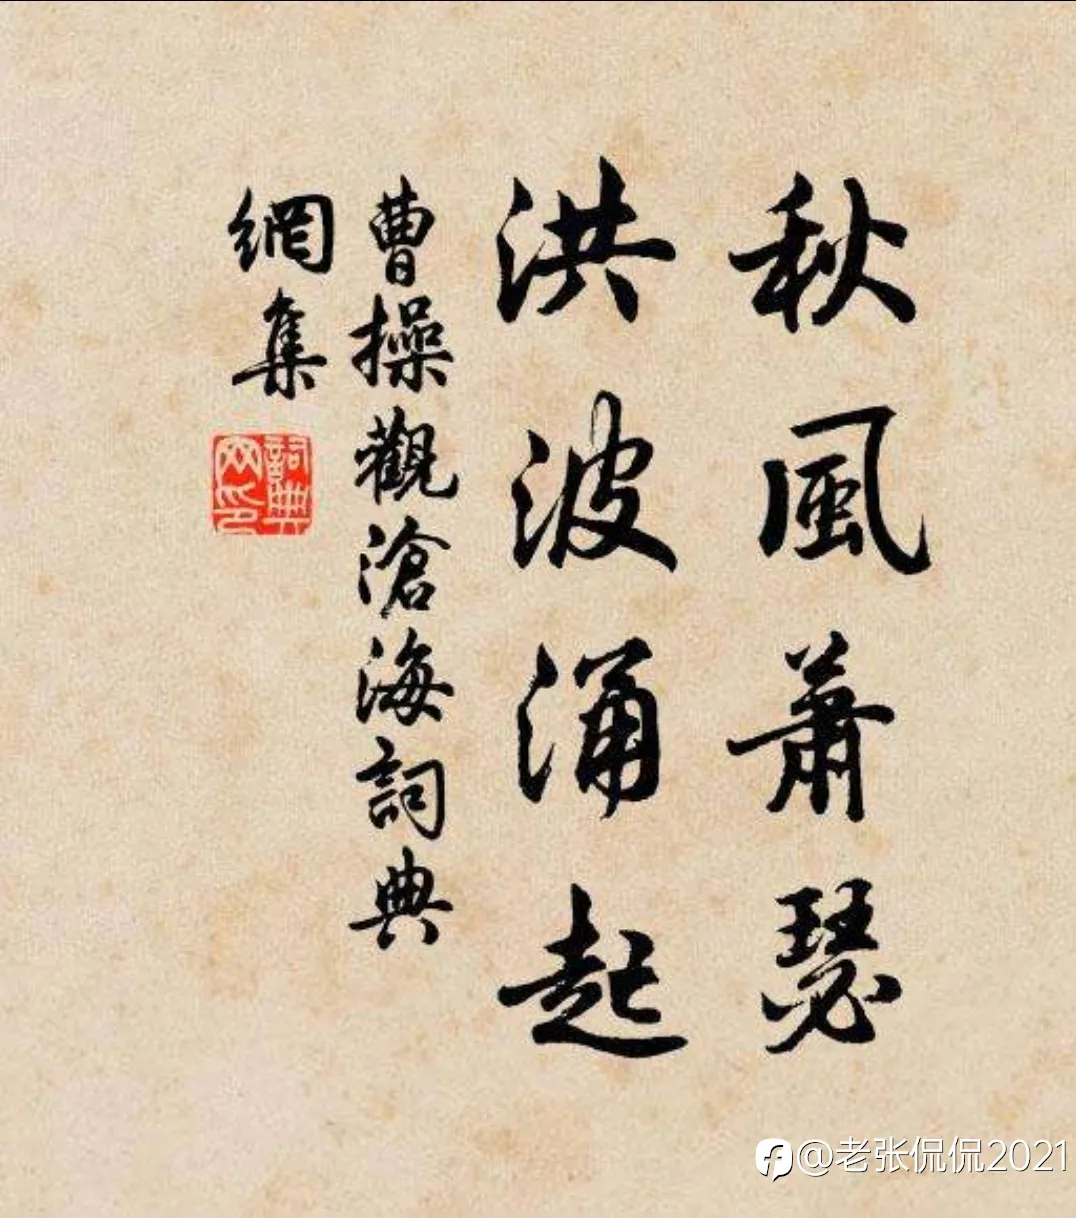 秋風蕭瑟
洪波涌起
曹操觀滄海詞典
網集
詞典网印
@老张侃侃2021